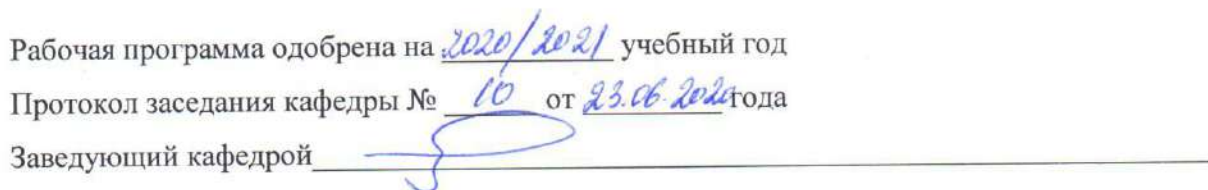 Рабочая программа одобрена на 2020/2021 учебный год
Протокол заседания кафедры № 10 от 23.06.2020 года
Заведующий кафедрой